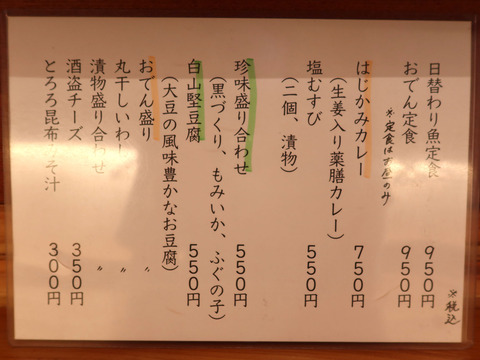 日替わり魚定食 950円
おでん定食 950円
※定食はお昼のみ
※税込
はじかみカレー 750円
(生姜入り薬膳カレー)
塩むすび 550円
(二個、漬物)
珍味盛り合わせ 550円
(黒づくり、もみいか、ふぐの子)
白山堅豆腐 550円
(大豆の風味豊かなお豆腐)
おでん盛り 〃
丸干しいわし 〃
漬物盛り合わせ 〃
酒盗チーズ 350円
とろろ昆布みそ汁 300円